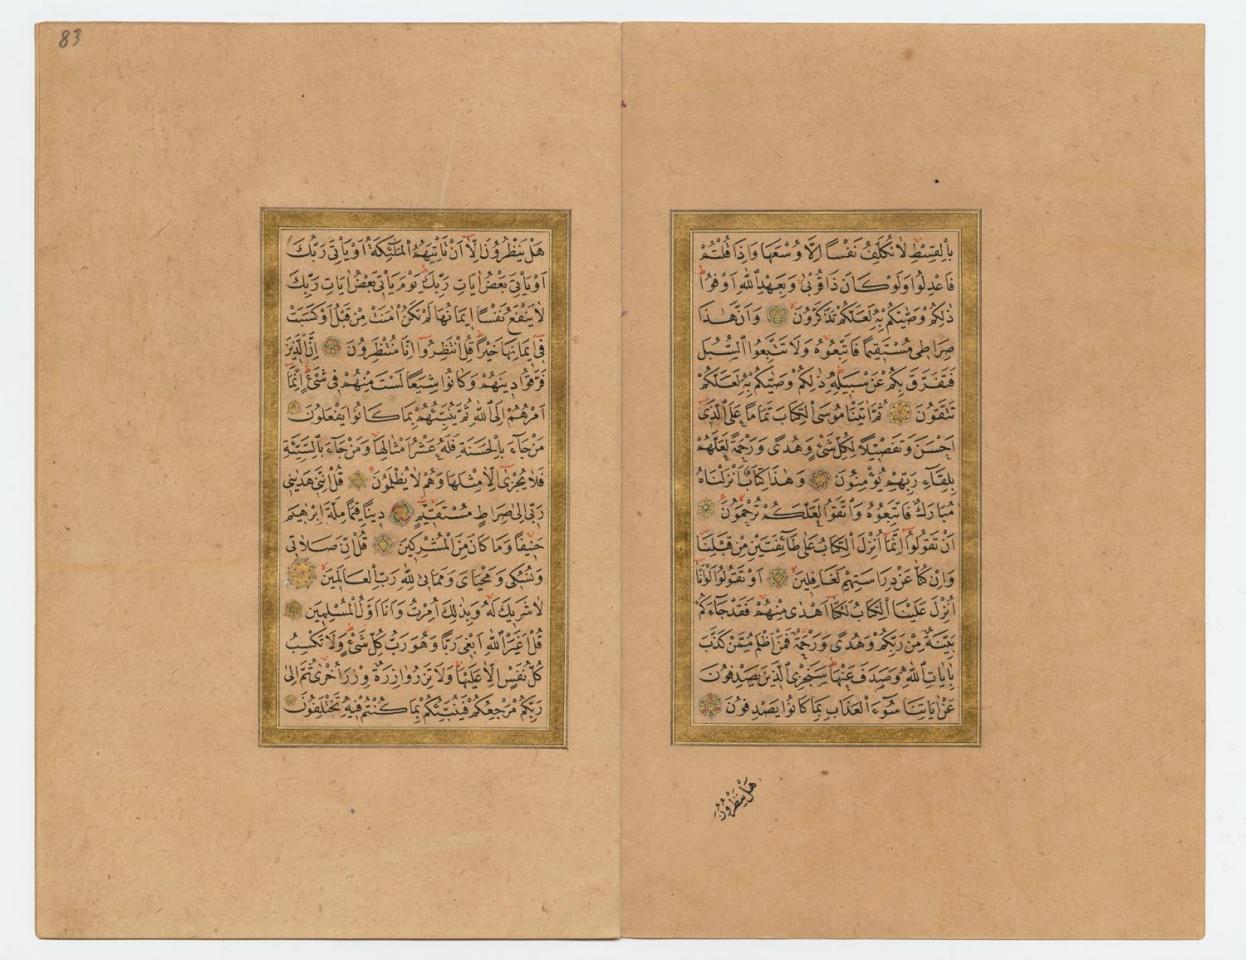 بِالْقِسْطِ لَا نُكَلِّفُ نَفْسًا اِلَّا وُسْعَهَا وَاِذَا قُلْتُمْ
فَاعْدِلُوا وَلَوْ كَانَ ذَا قُرْبٰى وَبِعَهْدِ اللّٰهِ اَوْفُوا
ذٰلِكُمْ وَصّٰيكُمْ بِهِ لَعَلَّكُمْ تَذَكَّرُونَ وَاَنَّ هٰذَا
صِرَاطِى مُسْتَقِيمًا فَاتَّبِعُوهُ وَلَا تَتَّبِعُوا السُّبُلَ
فَتَفَرَّقَ بِكُمْ عَنْ سَبِيلِهِ ذٰلِكُمْ وَصّٰيكُمْ بِهِ لَعَلَّكُمْ
تَتَّقُونَ ثُمَّ اٰتَيْنَا مُوسَى الْكِتَابَ تَمَامًا عَلَى الَّذِى
اَحْسَنَ وَتَفْصِيلًا لِكُلِّ شَىْءٍ وَهُدًى وَرَحْمَةً لَعَلَّهُمْ
بِلِقَاءِ رَبِّهِمْ يُؤْمِنُونَ وَهٰذَا كِتَابٌ اَنْزَلْنَاهُ
مُبَارَكٌ فَاتَّبِعُوهُ وَاتَّقُوا لَعَلَّكُمْ تُرْحَمُونَ
اَنْ تَقُولُوا اِنَّمَا اُنْزِلَ الْكِتَابُ عَلٰى طَائِفَتَيْنِ مِنْ قَبْلِنَا
وَاِنْ كُنَّا عَنْ دِرَاسَتِهِمْ لَغَافِلِينَ اَوْ تَقُولُوا لَوْ اَنَّا
اُنْزِلَ عَلَيْنَا الْكِتَابُ لَكُنَّا اَهْدٰى مِنْهُمْ فَقَدْ جَاءَكُمْ
بَيِّنَةٌ مِنْ رَبِّكُمْ وَهُدًى وَرَحْمَةٌ فَمَنْ اَظْلَمُ مِمَّنْ كَذَّبَ
بِاٰيَاتِ اللّٰهِ وَصَدَفَ عَنْهَا سَنَجْزِى الَّذِينَ يَصْدِفُونَ
عَنْ اٰيَاتِنَا سُوءَ الْعَذَابِ بِمَا كَانُوا يَصْدِفُونَ
هَلْ يَنْظُرُونَ
83
هَلْ يَنْظُرُونَ اِلَّا اَنْ تَاْتِيَهُمُ الْمَلٰئِكَةُ اَوْ يَاْتِىَ رَبُّكَ
اَوْ يَاْتِىَ بَعْضُ اٰيَاتِ رَبِّكَ يَوْمَ يَاْتِى بَعْضُ اٰيَاتِ رَبِّكَ
لَا يَنْفَعُ نَفْسًا اِيمَانُهَا لَمْ تَكُنْ اٰمَنَتْ مِنْ قَبْلُ اَوْ كَسَبَتْ
فِى اِيمَانِهَا خَيْرًا قُلِ انْتَظِرُوا اِنَّا مُنْتَظِرُونَ اِنَّ الَّذِينَ
فَرَّقُوا دِينَهُمْ وَكَانُوا شِيَعًا لَسْتَ مِنْهُمْ فِى شَىْءٍ اِنَّمَا
اَمْرُهُمْ اِلَى اللّٰهِ ثُمَّ يُنَبِّئُهُمْ بِمَا كَانُوا يَفْعَلُونَ
مَنْ جَاءَ بِالْحَسَنَةِ فَلَهُ عَشْرُ اَمْثَالِهَا وَمَنْ جَاءَ بِالسَّيِّئَةِ
فَلَا يُجْزٰى اِلَّا مِثْلَهَا وَهُمْ لَا يُظْلَمُونَ قُلْ اِنَّنِى هَدٰينِى
رَبِّى اِلٰى صِرَاطٍ مُسْتَقِيمٍ دِينًا قِيَمًا مِلَّةَ اِبْرٰهِيمَ
حَنِيفًا وَمَا كَانَ مِنَ الْمُشْرِكِينَ قُلْ اِنَّ صَلَاتِى
وَنُسُكِى وَمَحْيَاىَ وَمَمَاتِى لِلّٰهِ رَبِّ الْعَالَمِينَ
لَا شَرِيكَ لَهُ وَبِذٰلِكَ اُمِرْتُ وَاَنَا اَوَّلُ الْمُسْلِمِينَ
قُلْ اَغَيْرَ اللّٰهِ اَبْغِى رَبًّا وَهُوَ رَبُّ كُلِّ شَىْءٍ وَلَا تَكْسِبُ
كُلُّ نَفْسٍ اِلَّا عَلَيْهَا وَلَا تَزِرُ وَازِرَةٌ وِزْرَ اُخْرٰى ثُمَّ اِلٰى
رَبِّكُمْ مَرْجِعُكُمْ فَيُنَبِّئُكُمْ بِمَا كُنْتُمْ فِيهِ تَخْتَلِفُونَ